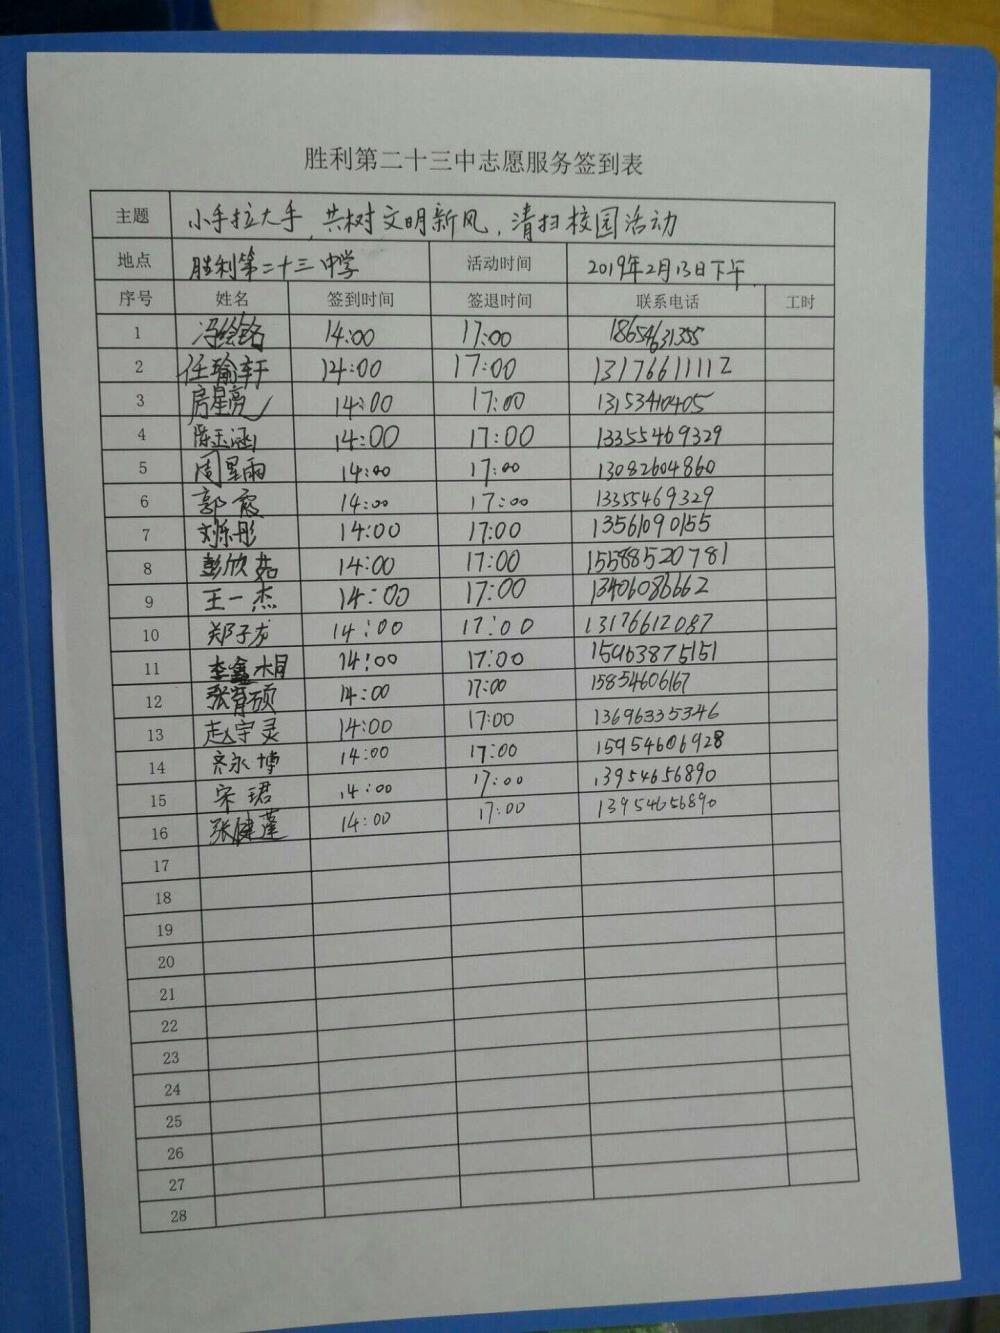 胜利第二十三中志愿服务签到表
主题 小手拉大手,共树文明新风,清扫校园活动
地点 胜利第二十三中学 活动时间 2019年2月13日下午.
序号 姓名 签到时间 签退时间 联系电话 工时
1 冯绘铭 14:00 17:00 18654631355
2 任瑜轩 14:00 17:00 13176611112
3 房星亮 14:00 17:00 13153410405
4 陈玉涵 14:00 17:00 13355469329
5 周星雨 14:00 17:00 13082604860
6 郭霞 14:00 17:00 13355469329
7 刘乐彤 14:00 17:00 13561090155
8 彭欣茹 14:00 17:00 15588520781
9 王一杰 14:00 17:00 13406086662
10 郑子龙 14:00 17:00 13176612087
11 李鑫 14:00 17:00 15963875151
12 张育硕 14:00 17:00 15854606167
13 赵宇灵 14:00 17:00 13696335346
14 齐永博 14:00 17:00 15954606928
15 宋珺 14:00 17:00 13954656890
16 张健蓬 14:00 17:00 13954656890
17
18
19
20
21
22
23
24
25
26
27
28